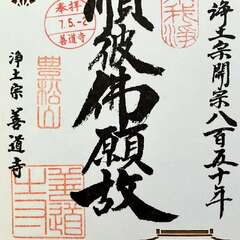 浄土宗開宗八百五十年
順彼佛願故
奉拝
7.5.-2
善道寺
豊松山
浄土宗 善道寺